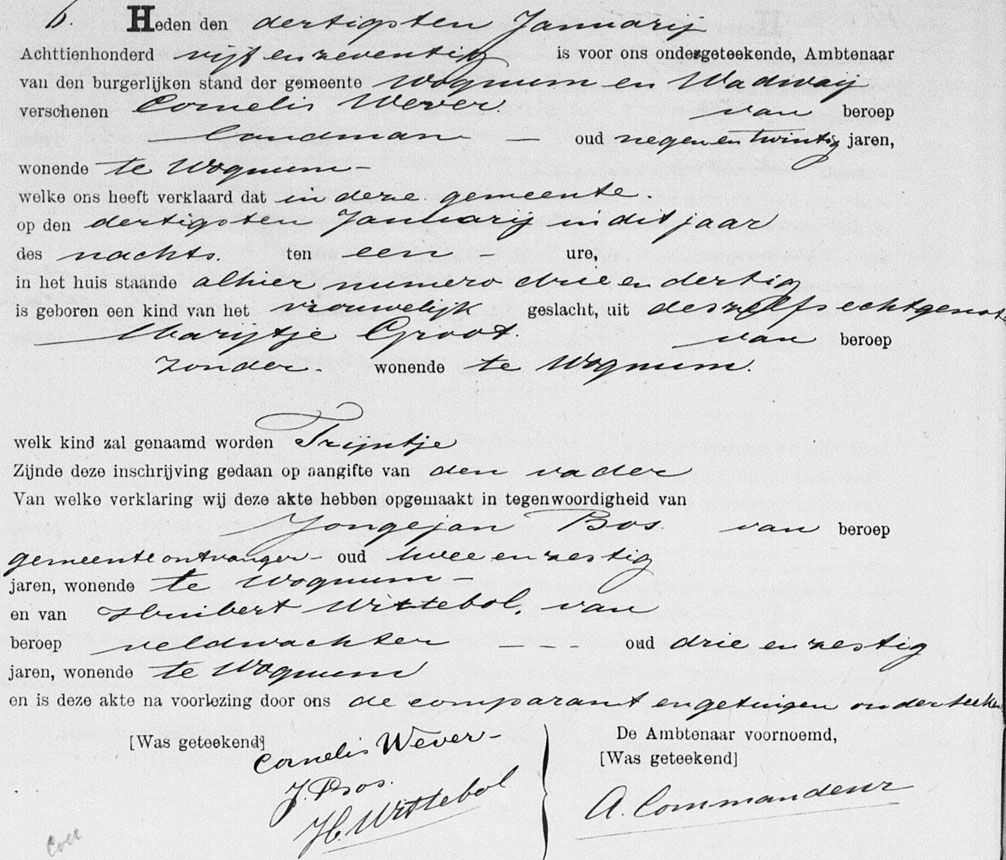 6. Heden den dertigsten Januarij
Achttienhonderd vijf en zeventig is voor ons ondergeteekende, Ambtenaar
van den burgerlijken stand der gemeente Wognum en Wadway
verschenen Cornelis Wever van beroep
landman — oud negen en twintig jaren,
wonende te Wognum —
welke ons heeft verklaard dat in deze gemeente
op den dertigsten Januarij in dit jaar
des nachts ten een — ure,
in het huis staande alhier numero drie en dertig
is geboren een kind van het vrouwelijk geslacht, uit deszelfs echtgenoot
Marijtje Groot. van beroep
zonder. wonende te Wognum.
welk kind zal genaamd worden Trijntje
Zijnde deze inschrijving gedaan op aangifte van den vader
Van welke verklaring wij deze akte hebben opgemaakt in tegenwoordigheid van
Jongejan Bos. van beroep
gemeente ontvanger — oud twee en zestig
jaren, wonende te Wognum —
en van Huibert Wittebol, van
beroep veldwachter — — — oud drie en zestig
jaren, wonende te Wognum
en is deze akte na voorlezing door ons de comparant en getuigen onderteeken
[Was geteekend] Cornelis Wever —
J. Bos.
H. Wittebol
De Ambtenaar voornoemd,
[Was geteekend]
A. Commandeur